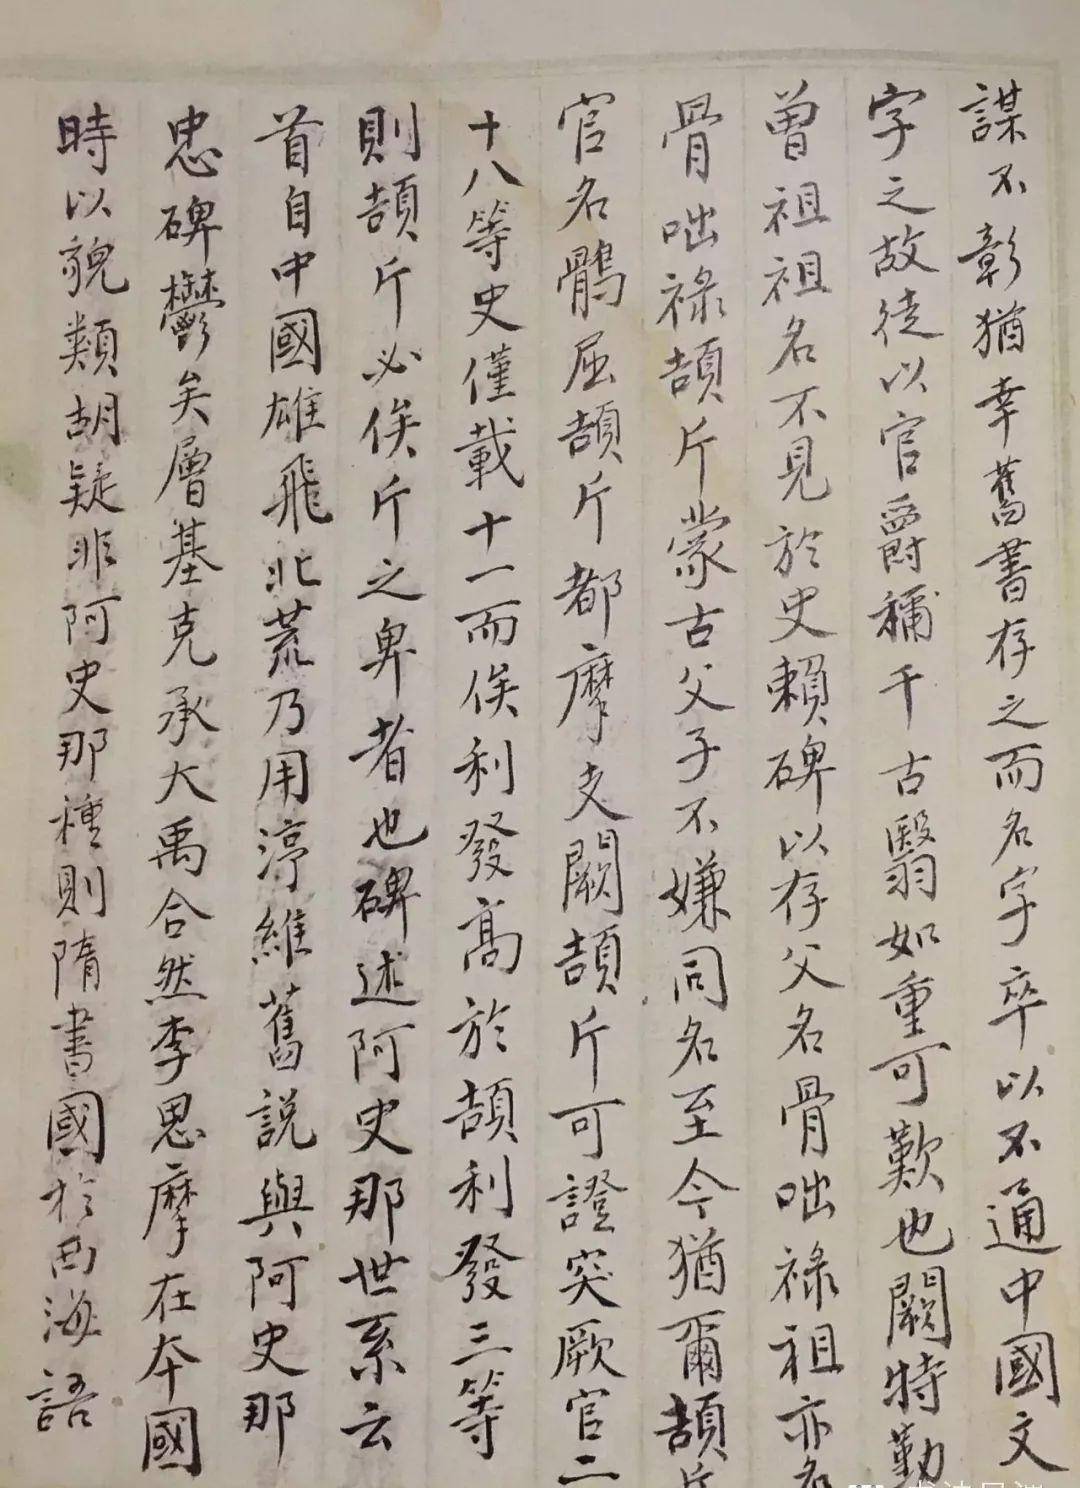 謀不彰猶幸舊書存之而名字卒以不通中國文
字之故徒以官爵稱千古翳如重可歎也闕特勤
曾祖祖名不見於史賴碑以存父名骨咄祿祖亦名
骨咄祿頡斤蒙古父子不嫌同名至今猶爾頡斤
官名鶻屈頡斤都摩支闕頡斤可證突厥官二
十八等史僅載十一而俟利發高於頡利發三等
則頡斤必俟斤之卑者也碑述阿史那世系云
首自中國雄飛北荒乃用淳維舊說與阿史那
忠碑鬱矣層基克承大禹合然李思摩在本國
時以貌類胡疑非阿史那種則隋書國於西海語